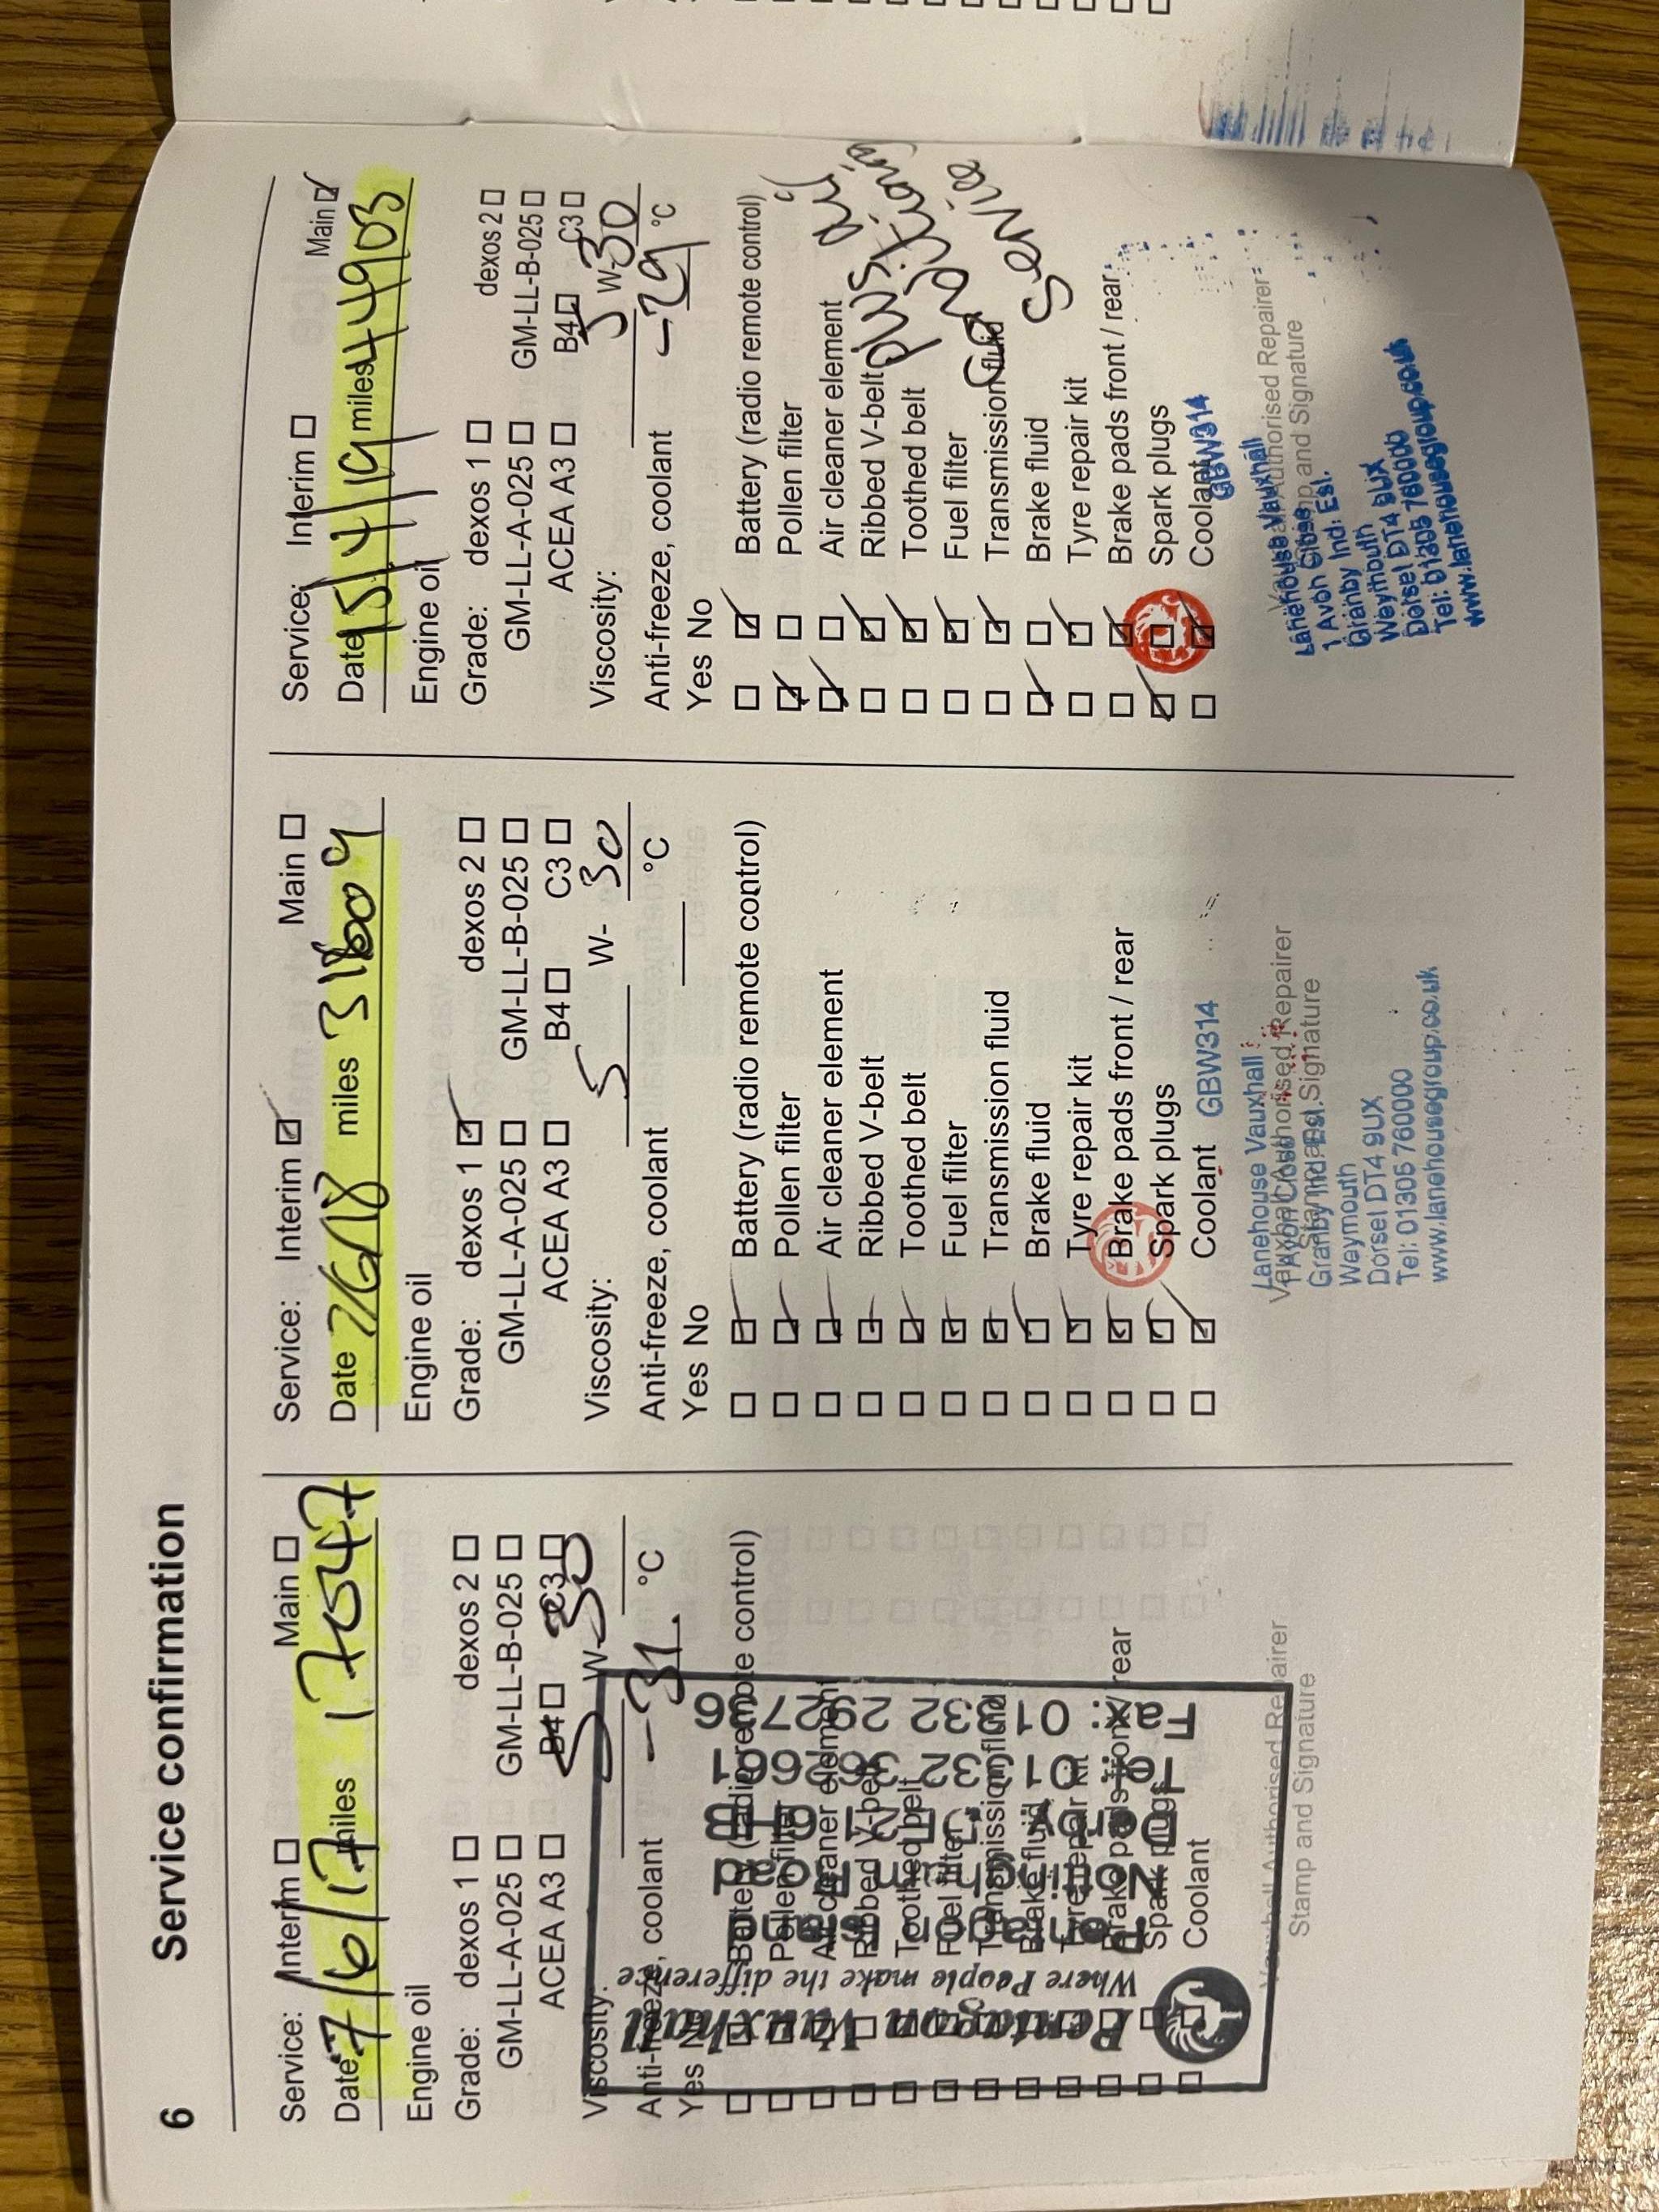 6 Service confirmation
Service: Interim □ Main □
Date 7/6/17 miles 17047
Engine oil
Grade: dexos 1 □ dexos 2 □
GM-LL-A-025 □ GM-LL-B-025 □
ACEA A3 □ B4 □ C3 □
Viscosity: 5 W- 30
Anti-freeze, coolant -31 °C
Yes No
Battery (radio remote control)
Pollen filter
Air cleaner element
Ribbed V-belt
Toothed belt
Fuel filter
Transmission fluid
Brake fluid
Tyre repair kit
Brake pads front / rear
Spark plugs
Coolant
Vauxhall Authorised Repairer
Stamp and Signature
Pentagon Vauxhall
Where People make the difference
Pentagon Island
Nottingham Road
Derby
Fax: 01332 292736
Service: Interim ☑ Main □
Date 7/6/18 miles
Engine oil
Grade: dexos 1 ☑ dexos 2 □
GM-LL-A-025 □ GM-LL-B-025 □
ACEA A3 □ B4 □ C3 □
Viscosity: 5 W- 30
Anti-freeze, coolant °C
Yes No
□ ☑ Battery (radio remote control)
□ ☑ Pollen filter
□ ☑ Air cleaner element
□ ☑ Ribbed V-belt
□ ☑ Toothed belt
□ ☑ Fuel filter
□ ☑ Transmission fluid
□ ☑ Brake fluid
□ ☑ Tyre repair kit
□ ☑ Brake pads front / rear
□ ☑ Spark plugs
□ ☑ Coolant GBW314
Vauxhall Authorised Repairer
Stamp and Signature
Lanehouse Vauxhall
1 Avon Close
Granby Ind. Est.
Weymouth
Dorset DT4 9UX
Tel: 01305 760000
www.lanehousegroup.co.uk
Service: Interim □ Main ☑
Date 5/4/19 miles 44903
Engine oil
Grade: dexos 1 □ dexos 2 □
GM-LL-A-025 □ GM-LL-B-025 □
ACEA A3 □ B4 □ C3 □
Viscosity: 5 W- 30
Anti-freeze, coolant -29 °C
Yes No
□ ☑ Battery (radio remote control)
☑ □ Pollen filter
☑ □ Air cleaner element
□ ☑ Ribbed V-belt
□ ☑ Toothed belt
□ ☑ Fuel filter
□ ☑ Transmission fluid
☑ □ Brake fluid
□ ☑ Tyre repair kit
□ ☑ Brake pads front / rear
☑ □ Spark plugs
□ ☑ Coolant GBW314
plus
service
Vauxhall Authorised Repairer
Stamp and Signature
Lanehouse Vauxhall
1 Avon Close
Granby Ind. Est.
Weymouth
Dorset DT4 9UX
Tel: 01305 760000
www.lanehousegroup.co.uk